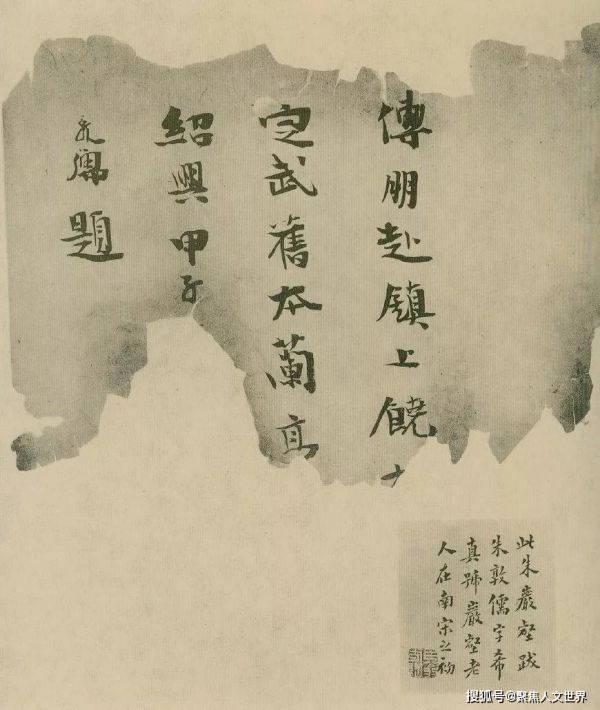 傅朋赴鎮上饒
定武舊本蘭亭
紹興甲子
題
此朱巖壑跋
朱敦儒字希
真號巖壑老
人在南宋之初
搜狐号@聚焦人文世界